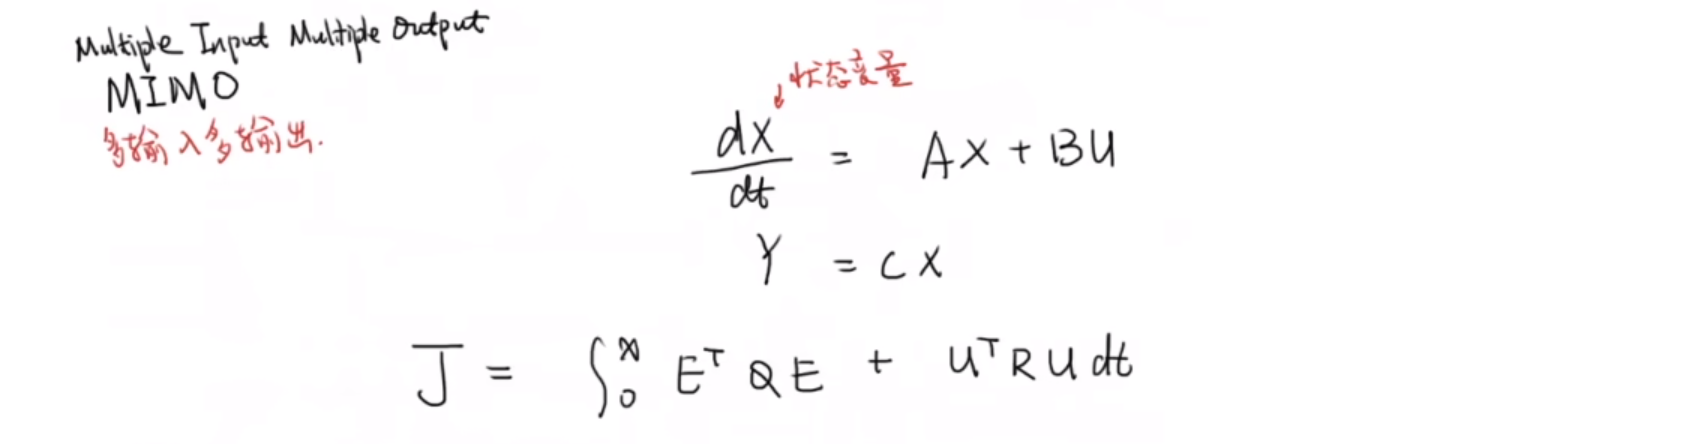 Multiple Input Multiple Output
MIMO
多输入多输出.
状态变量
dX/dt = AX + BU
Y = CX
J = ∫₀^∞ Eᵀ Q E + Uᵀ R U dt